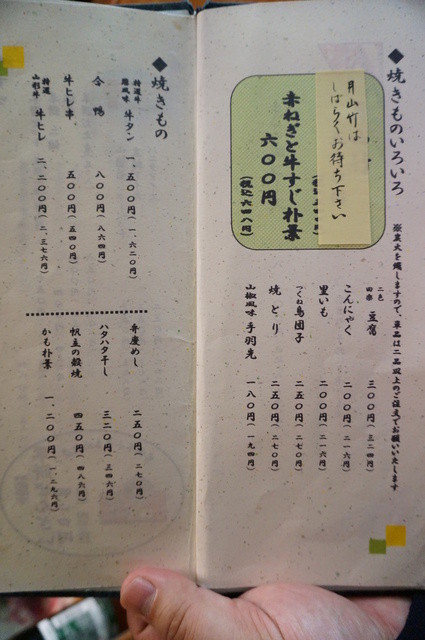 ◆焼きものいろいろ
※炭火を熾しますので、単品は二品以上のご注文でお願いいたします
月山竹は
しばらくお待ち下さい
赤ねぎと牛すじ朴葉
六〇〇円
(税込六四八円)
二色田楽 豆腐 三〇〇円(三二四円)
こんにゃく 二〇〇円(二一六円)
里いも 二〇〇円(二一六円)
つくね鳥団子 二五〇円(二七〇円)
焼とり 二五〇円(二七〇円)
山椒風味 手羽先 一八〇円(一九四円)
◆焼きもの
特選牛 牛タン 一、五〇〇円(一、六二〇円)
合鴨 八〇〇円(八六四円)
牛ヒレ串 五〇〇円(五四〇円)
特選山形牛 牛ヒレ 二、二〇〇円(二、三七六円)
弁慶めし 二五〇円(二七〇円)
ハタハタ干し 三二〇円(三四六円)
帆立の殻焼 四五〇円(四八六円)
かも朴葉 一、二〇〇円(一、二九六円)